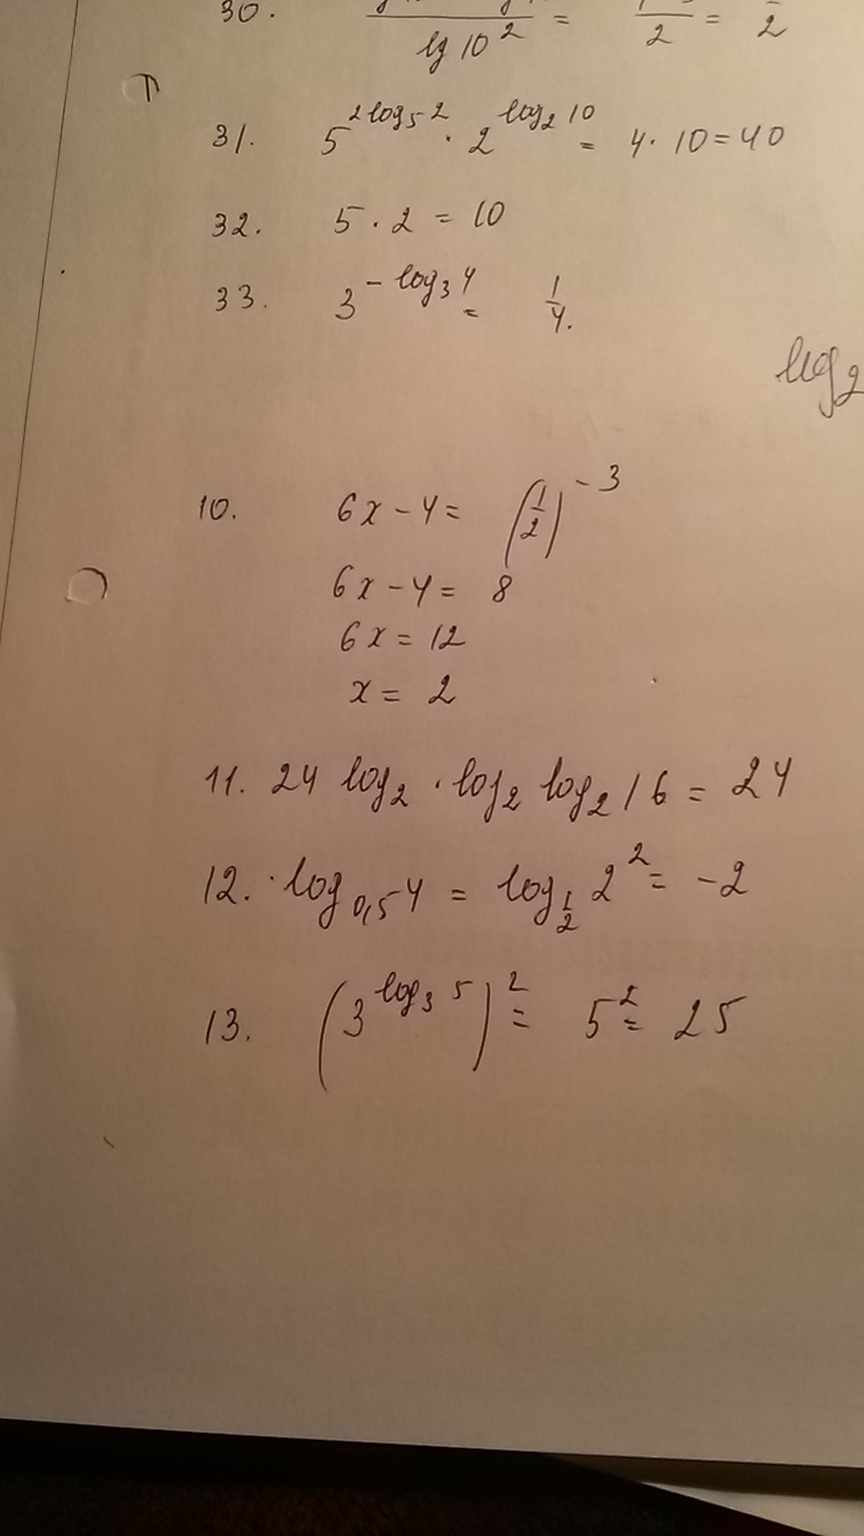 30. lg 10^2 = 2 = 2
31. 5^(2 log_5 2) · 2^(log_2 10) = 4 · 10 = 40
32. 5 · 2 = 10
33. 3^(- log_3 4) = 1/4.
log_2
10. 6x - 4 = (1/2)^(-3)
6x - 4 = 8
6x = 12
x = 2
11. 24 log_2 · log_2 log_2 16 = 24
12. · log_0,5 4 = log_(1/2) 2^2 = -2
13. (3^(log_3 5))^2 = 5^2 = 25